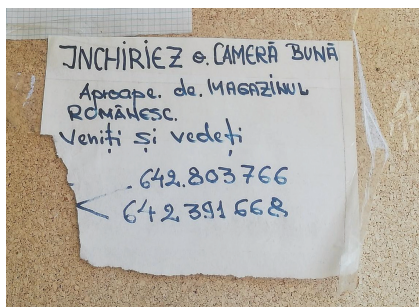 ÎNCHIRIEZ o. CAMERĂ BUNĂ
Aproape. de. MAGAZINUL
ROMÂNESC.
Veniți și vedeți
.642.803766
642391668